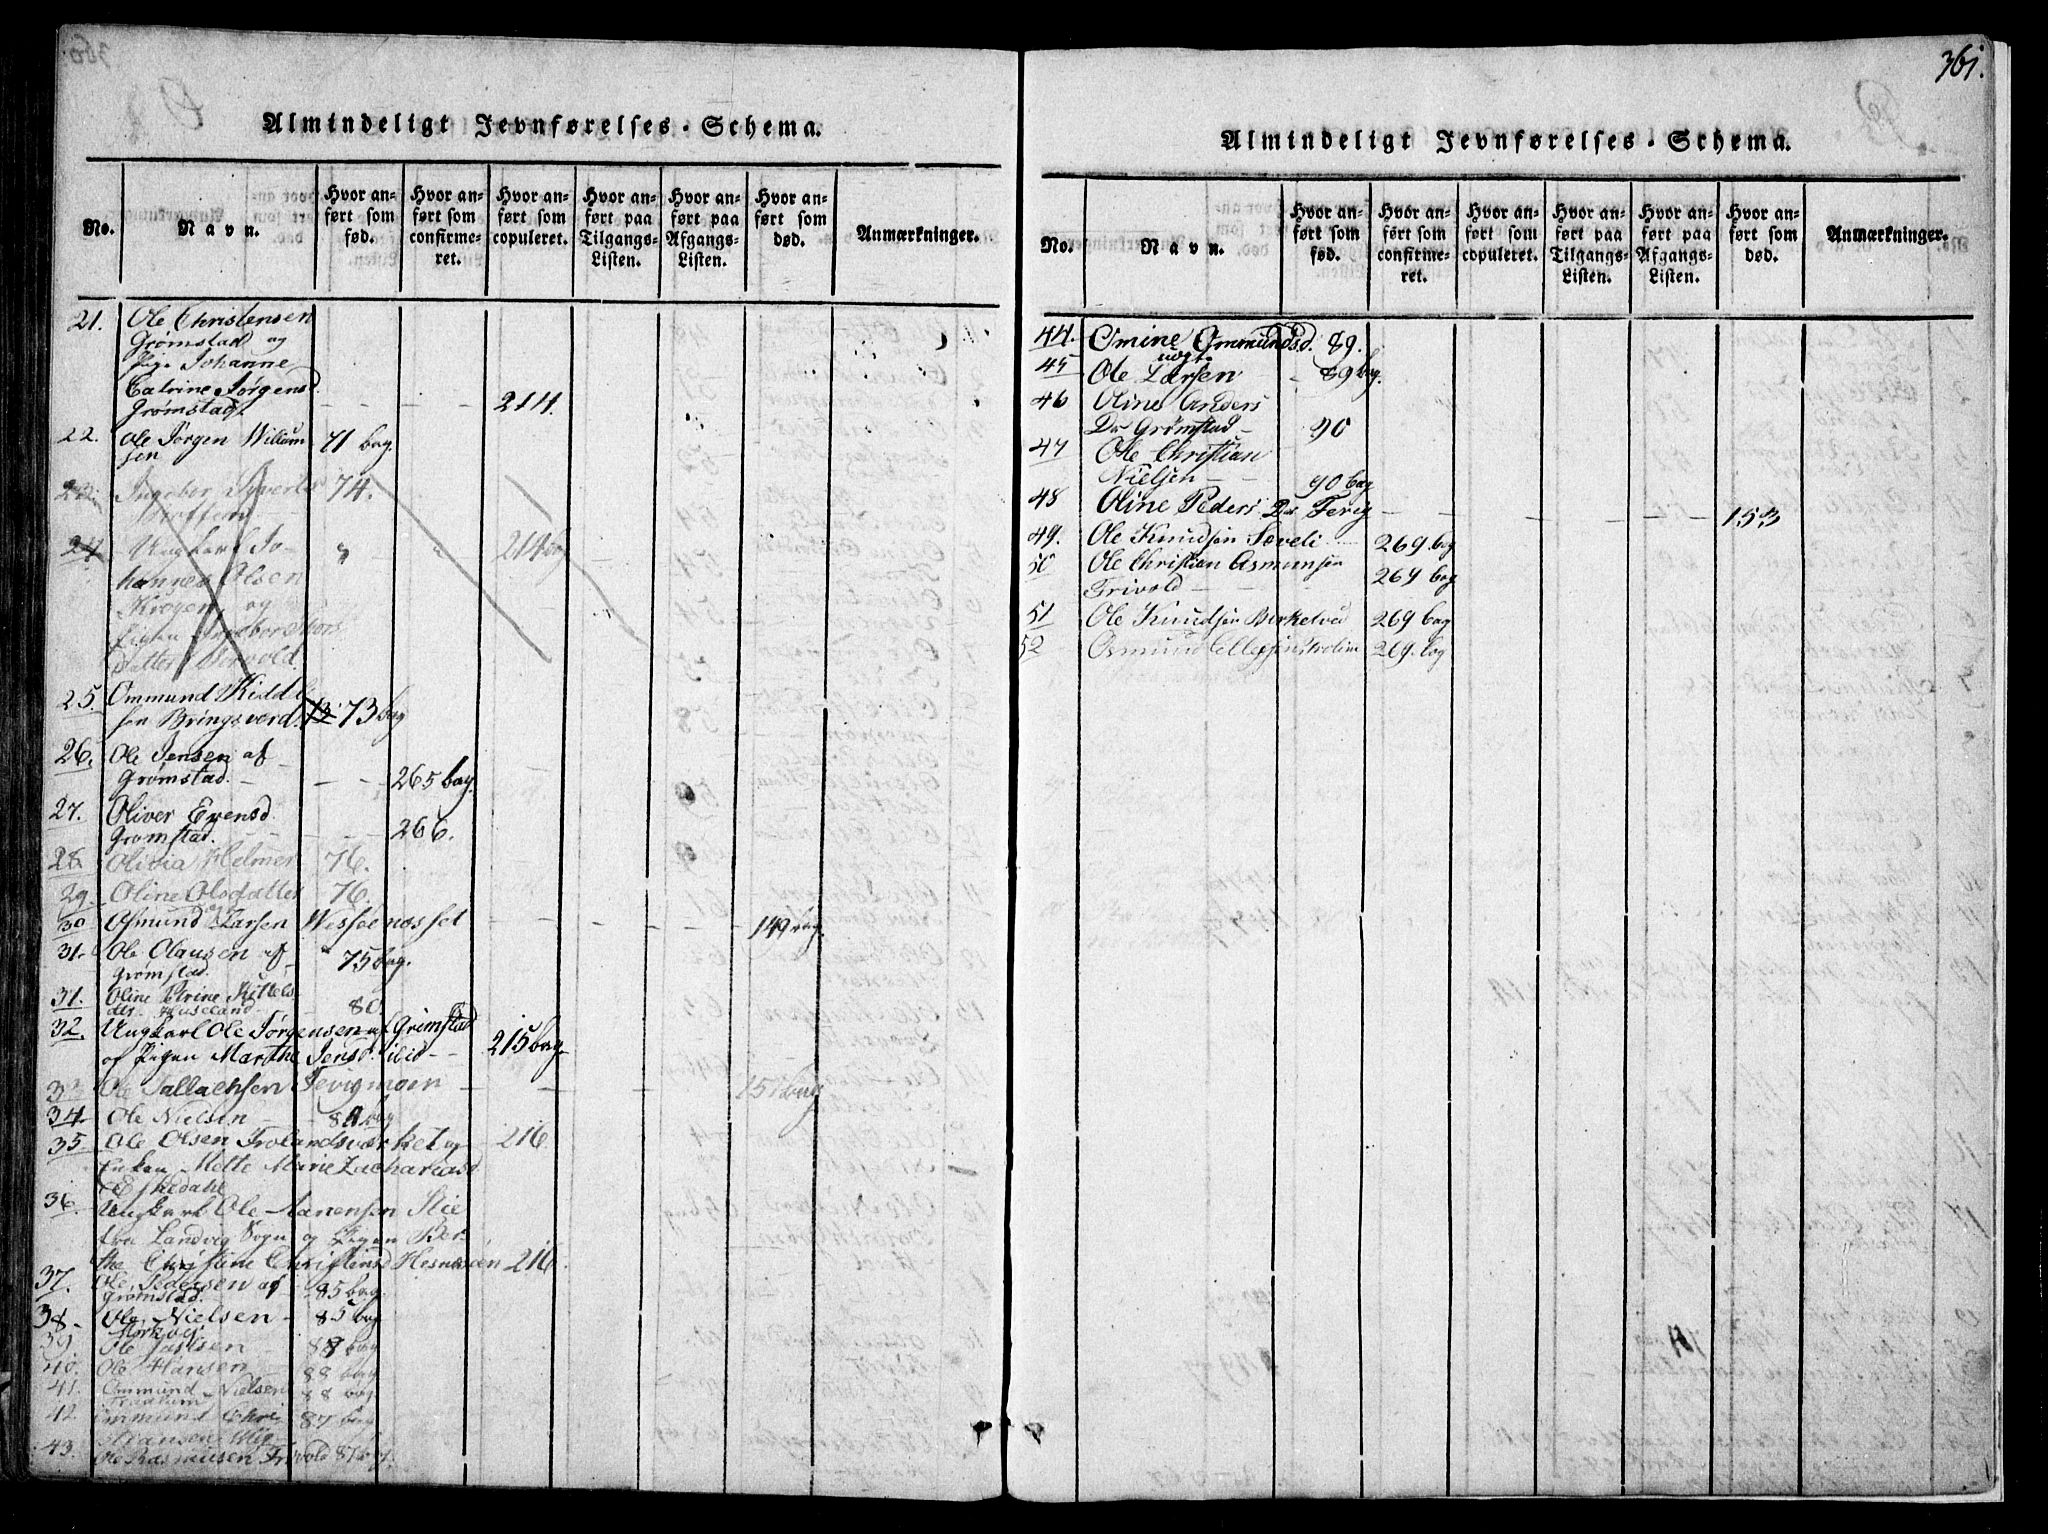 Almindeligt Jevnførelses-Schema.
No.
Navn.
Hvor anført som fød.
Hvor anført som confirmeret.
Hvor anført som copuleret.
Hvor anført paa Tilgangs-Listen.
Hvor anført paa Afgangs-Listen.
Hvor anført som død.
Anmærkninger.
21. Ole Christensen
Grømstad og
Pige Johanne
Catrine Jørgensd.
Grømstad 211.
22. Ole Jørgen Willum
sen 71 bag.
23. Ingebor Syverts 74.
24 Ungkarl Jo- 214 bag
hannes Olsen
Krogen og
Pigen Ingebor Thors
Datter Worvold.
25. Ommund Kiddel
sen Bringsverd. 73 bag
26. Ole Jensen af
Grømstad. 265 bag.
27. Oliver Evensd.
Grømstad. 266.
28 Olivia Helmer 76.
29. Oline Olsdatter 76.
30 Osmund Larsen Wessøe næsset 149 bag.
31. Ole Clausen af
Grømstad. 75 bag.
31. Oline Petrine Kittels
dtr. Huseland 80.
32. Ungkarl Ole Jørgensen af Grimstad
og Pigen Marthe Jensd. ibid 215 bag
33 Ole Tallachsen Fevigmoen 151 bag
34. Ole Nielsen 81 bag
35. Ole Olsen Frolandsværket og 216
Enken Mette Marie Zachariasd
Eskedahl
36 Ungkarl Ole Aanensen Stie
fra Landvig Sogn og Pigen Ber-
the Christine Christensd Hesnesøen 216.
37. Ole Pedersen af
Grømstad. 85 bag.
38. Ole Nielsen 85 bag
Størkvig
39. Ole Jassen 88 bag
40. Ole Hansen 88 bag
41. Ommund Nielsen 88 bag
42. Ommund Chri 87 bag
stiansen Wig
43. Ole Rasmusen Frivold 87 bag.
361.
Almindeligt Jevnførelses-Schema.
No.
Navn.
Hvor anført som fød.
Hvor anført som confirmeret.
Hvor anført som copuleret.
Hvor anført paa Tilgangs-Listen.
Hvor anført paa Afgangs-Listen.
Hvor anført som død.
Anmærkninger.
44. Omine Ommundsd. 89.
45 Ole Larsen 89 bag.
46 Oline Anders
Dr Grømstad 90
47 Ole Christian
Nielsen 90 bag
48 Oline Peders Dr. Fevig 153
49. Ole Knudsen Sæveli 269 bag
50 Ole Christian Asmunsen
Frivold 269 bag
51 Ole Knudsen Birketved 269 bag
52 Osmund Ellefsen Stroline 269. bag